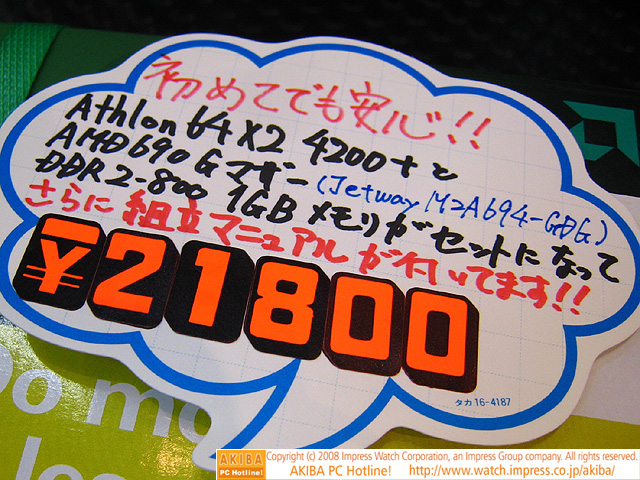 初めてでも安心!!
Athlon 64 X2 4200+と
AMD690Gマザー(Jetway M2A694-GDG)
DDR2-800 1GBメモリがセットになって
さらに組立マニュアルが付いてます!!
¥21800
タカ 16-4187
Do mo
les
AKIBA
PC Hotline!
Copyright (c) 2008 Impress Watch Corporation, an Impress Group company. All rights reserved.
AKIBA PC Hotline! http://www.watch.impress.co.jp/akiba/